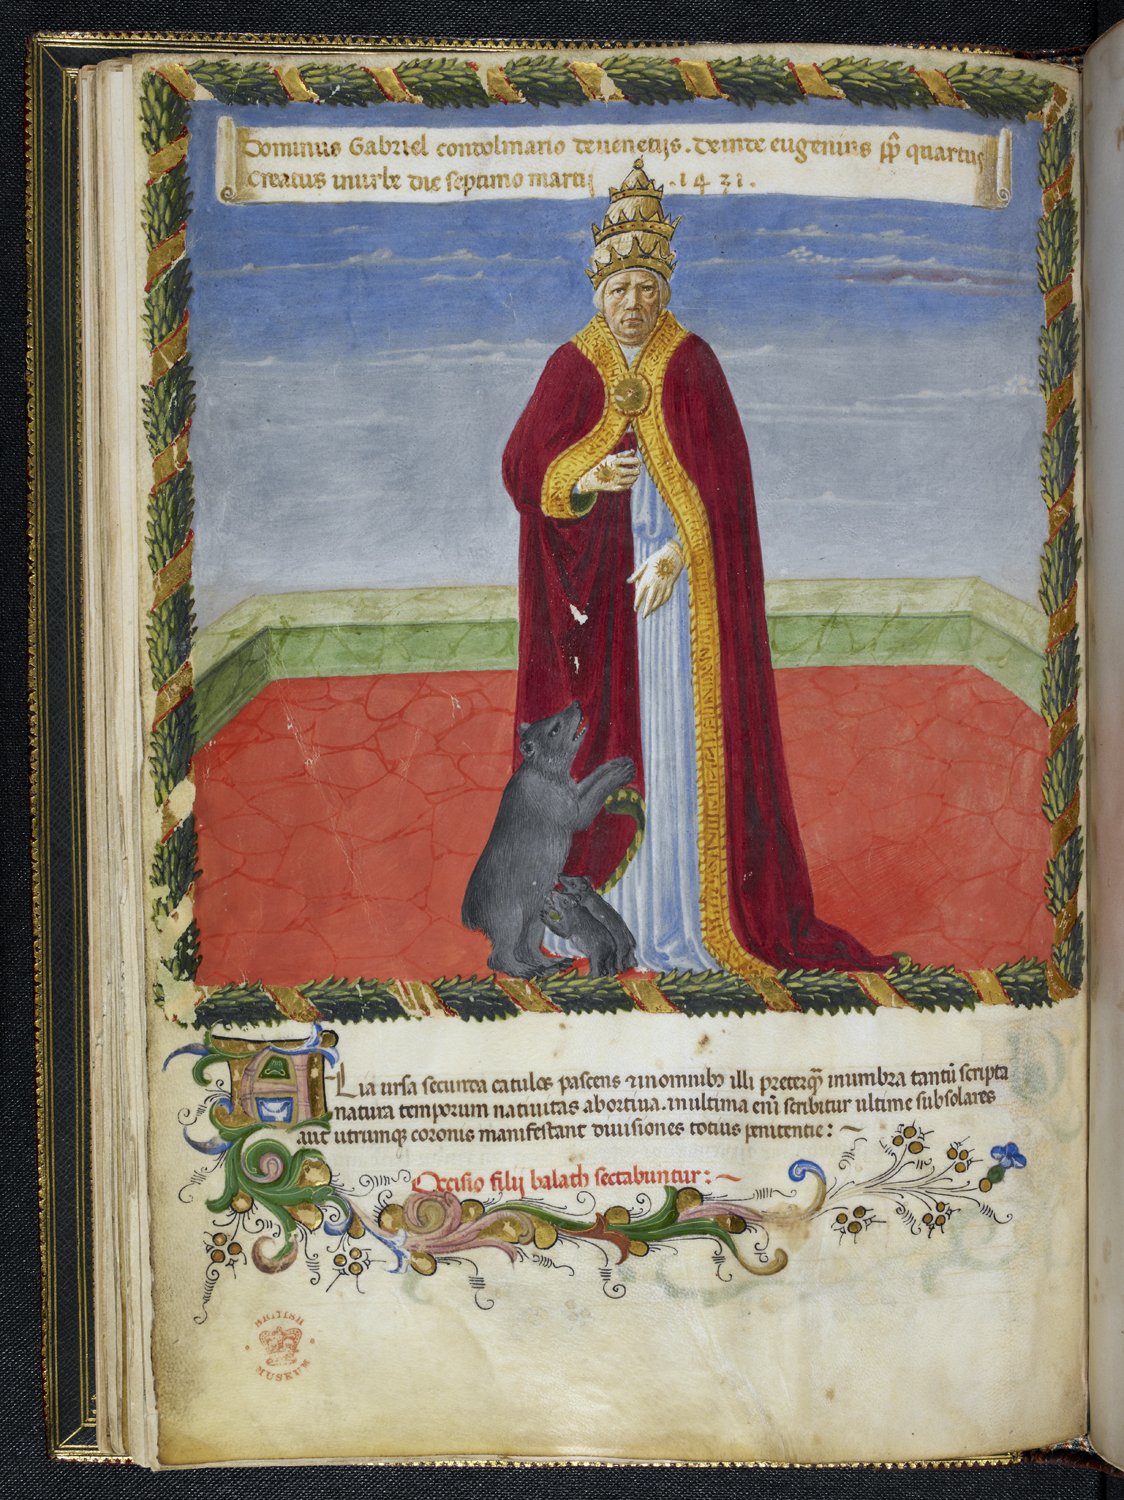 Dominus Gabriel condolmario deuenetijs. Deinde eugenius pp̄ quartus
Creatus inurbe die septimo martij .1431.
Alia ursa secunda catulos pascens ⁊inomnibꝫ illi preterq̄ꝫ inumbra tantū scripta
natura temporum natiuitas abortiua. inultima enī scribitur ultime subsolares
aut utrumqꝫ coronis manifestant diuisiones totius penitentie: ~
Occisio filij balach sectabuntur: ~
BRITISH
MUSEUM